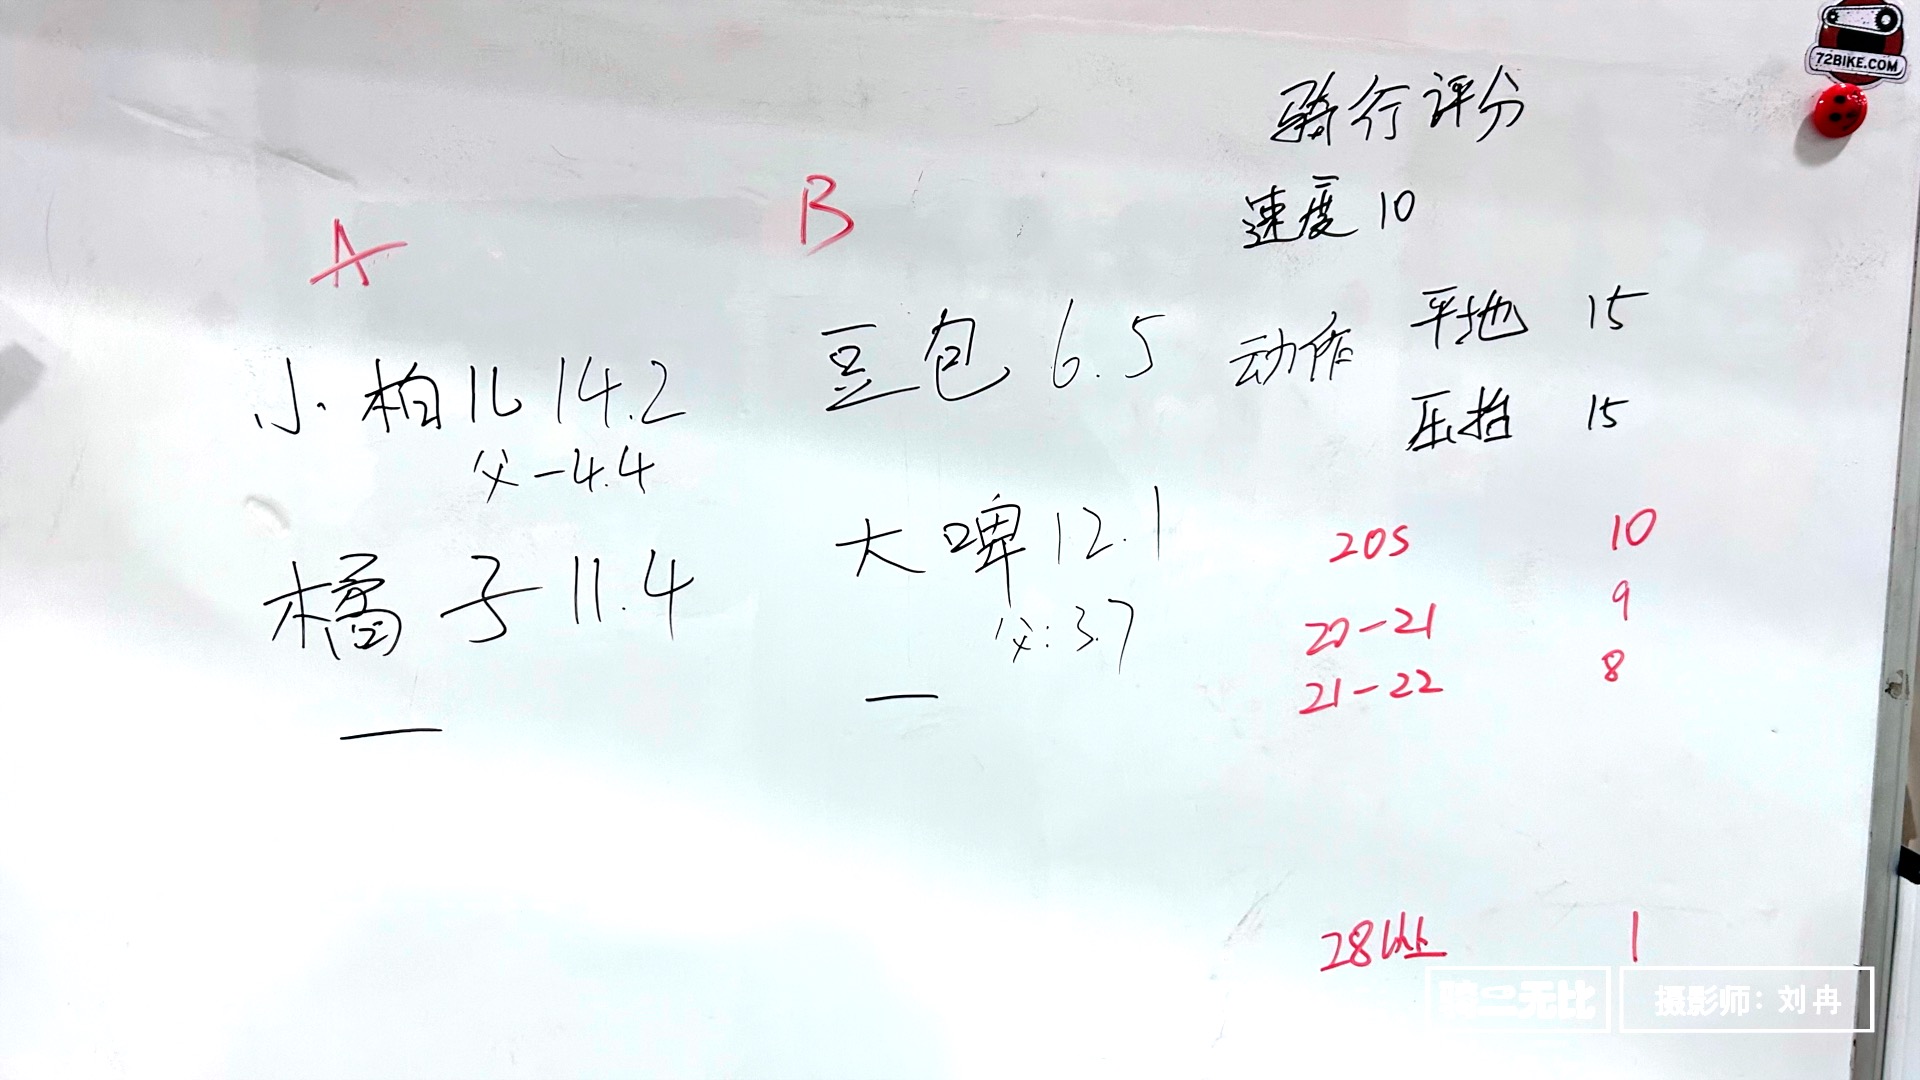 72BIKE.COM
骑行评分
速度 10
A
B
小柏儿 14.2
父-4.4
橘子 11.4
豆包 6.5
大啤 12.1
父:3.7
动作 平地 15
压抬 15
20S 10
20-21 9
21-22 8
28以上 1
骑二无比
摄影师:刘冉